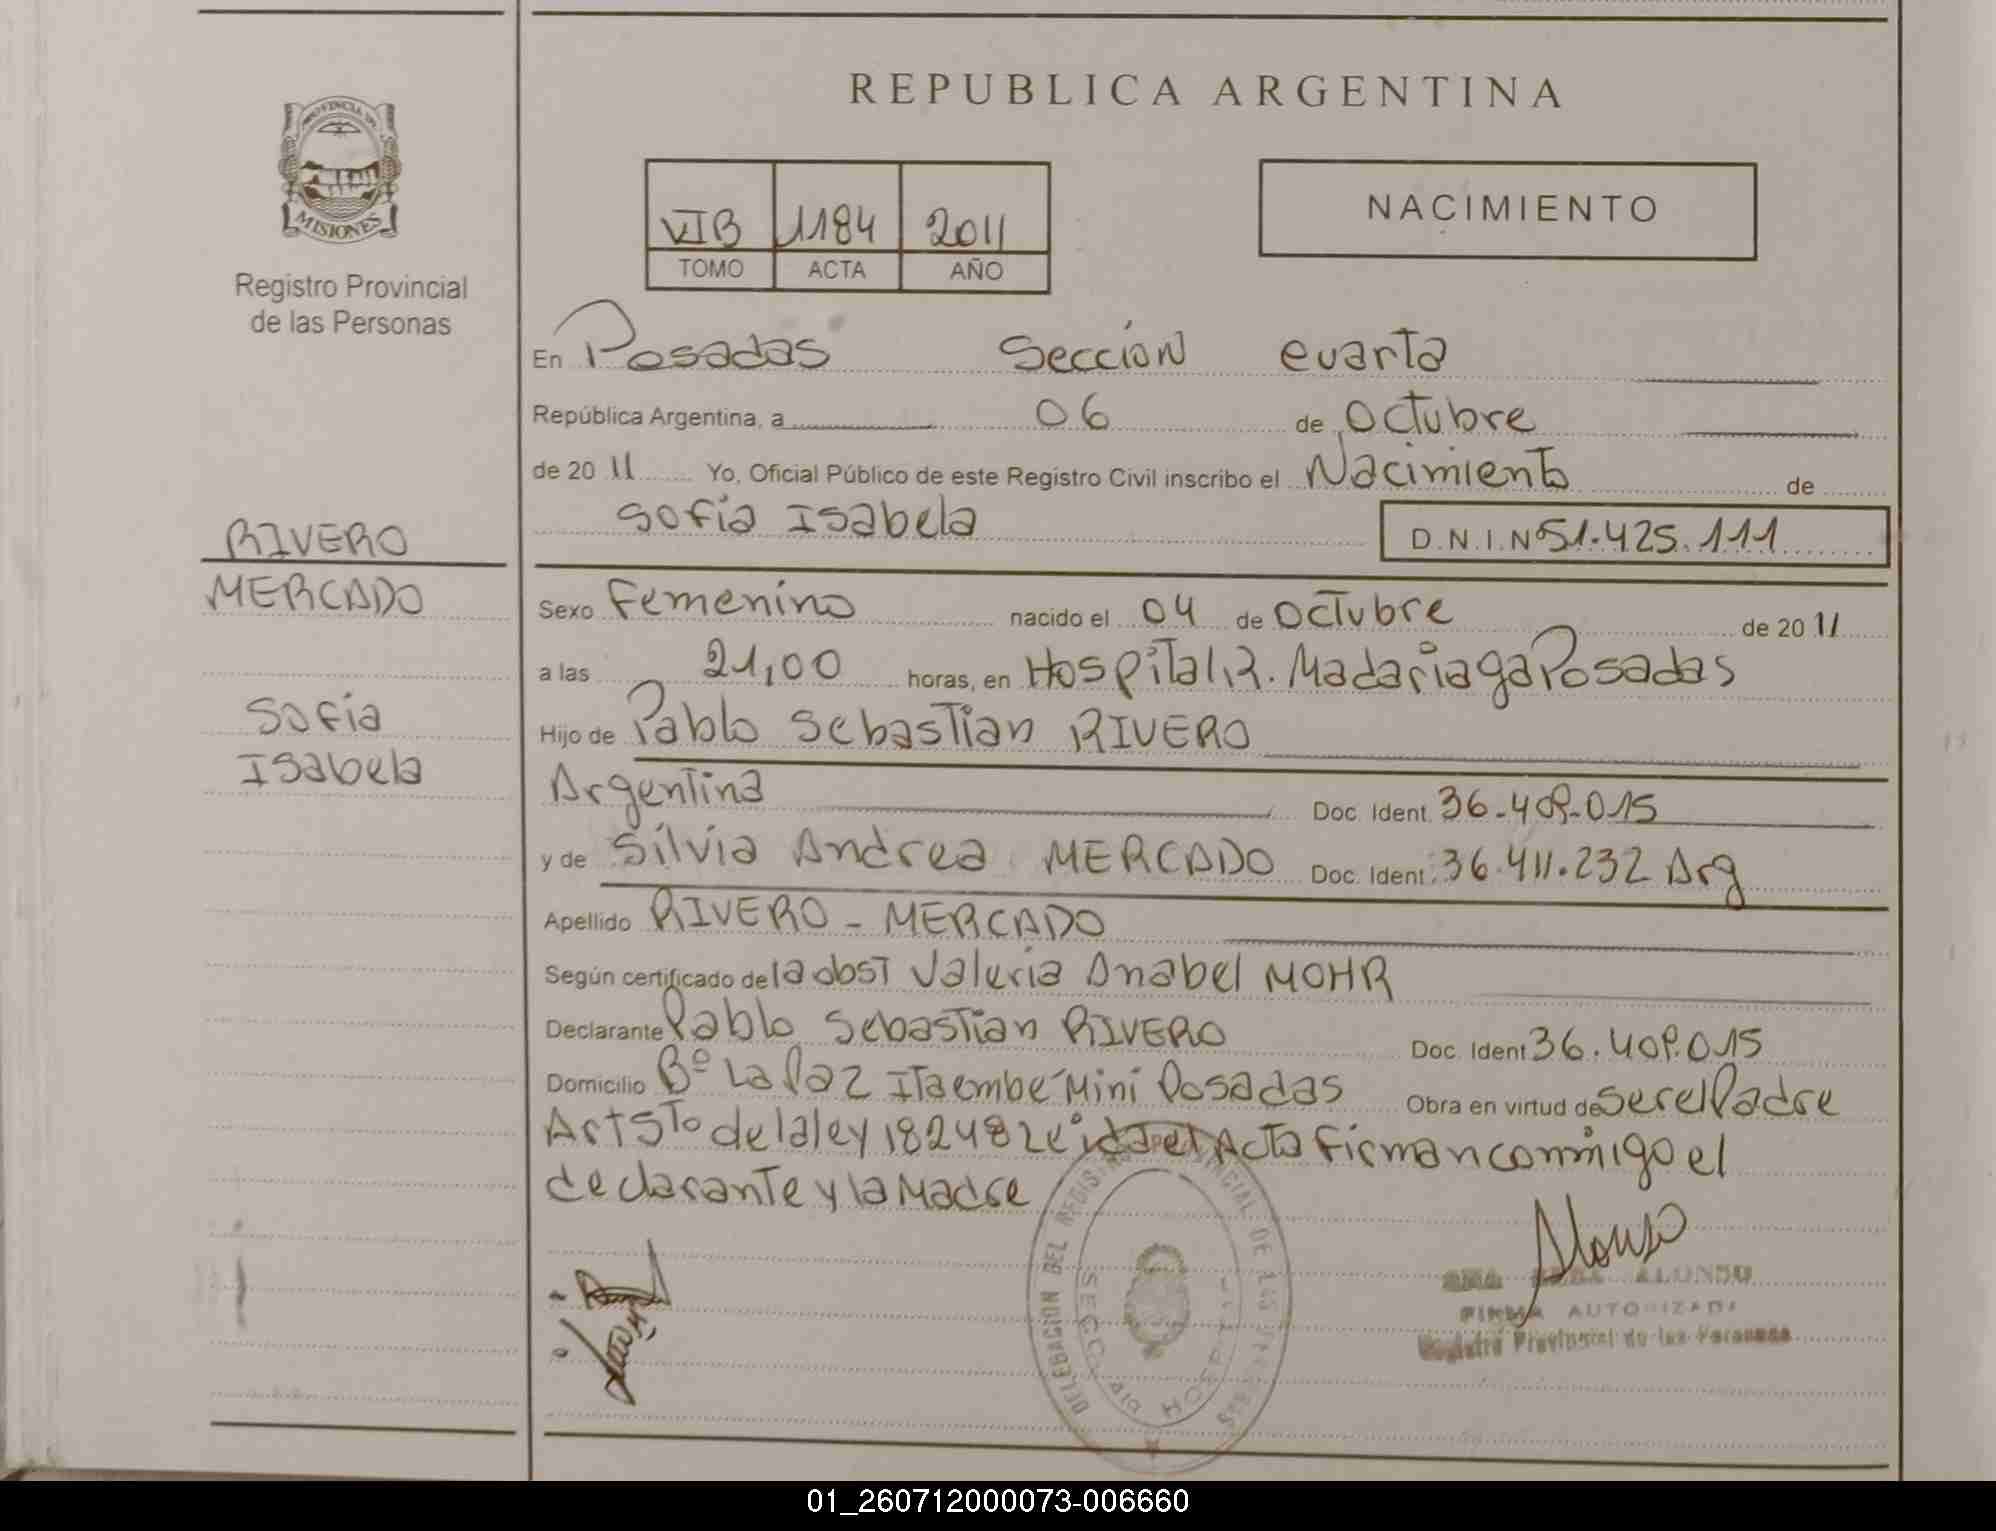 REPUBLICA ARGENTINA
PROVINCIA DE
MISIONES
Registro Provincial
de las Personas
VIB 1184 2011
TOMO ACTA AÑO
NACIMIENTO
En Posadas Sección cuarta
República Argentina, a 06 de Octubre
de 2011 Yo, Oficial Público de este Registro Civil inscribo el Nacimiento de
Sofía Isabela D.N.I.Nº51.425.111
RIVERO
MERCADO
Sofía
Isabela
Sexo Femenino nacido el 04 de Octubre de 2011
a las 21,00 horas, en Hospital, R. Madariaga Posadas
Hijo de Pablo Sebastian RIVERO
Argentina Doc. Ident. 36.409.015
y de Silvia Andrea MERCADO Doc. Ident. 36.411.232 Arg
Apellido RIVERO - MERCADO
Según certificado de la obst Valeria Anabel MOHR
Declarante Pablo Sebastian RIVERO Doc. Ident 36.409.015
Domicilio Bº La Paz Itaembé Mini Posadas Obra en virtud de ser el Padre
Art 5to de la ley 18248 Leída el Acta Firman conmigo el
declarante y la Madre
Alonso
ALONSO
FIRMA AUTORIZADA
Registro Provincial de las Personas
DELEGACION DEL REGISTRO PROVINCIAL DE LAS PERSONAS
01_260712000073-006660